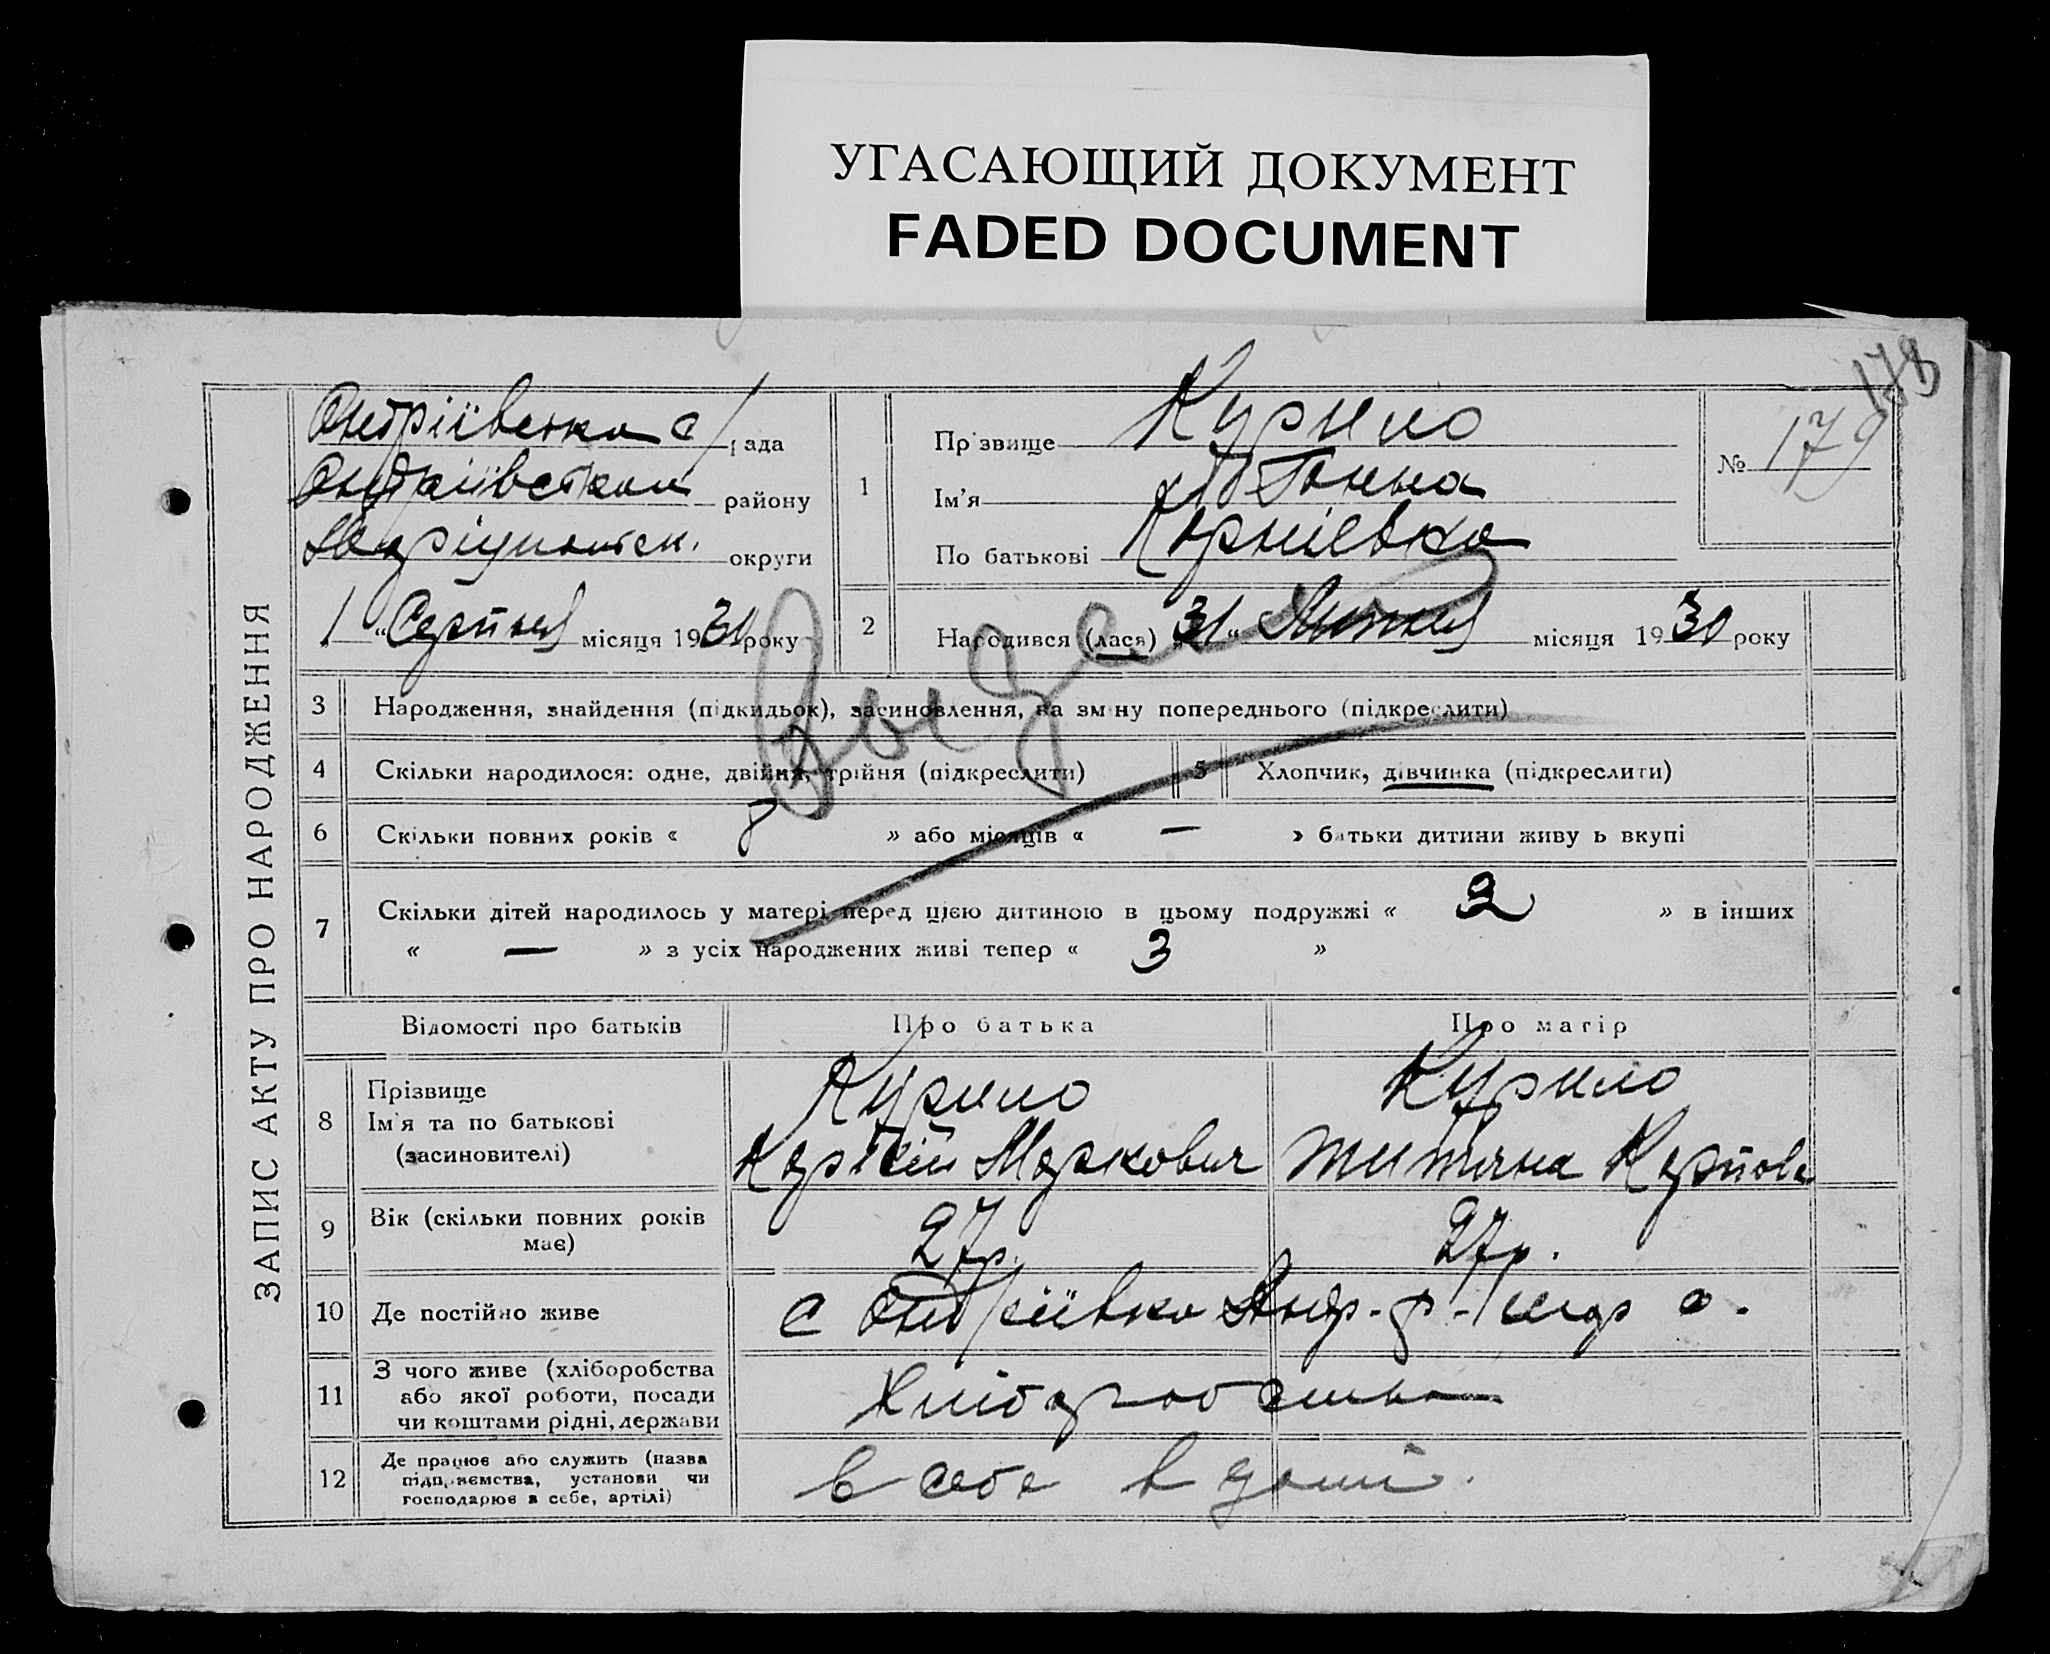 УГАСАЮЩИЙ ДОКУМЕНТ
FADED DOCUMENT
178
ЗАПИС АКТУ ПРО НАРОДЖЕННЯ
Андріївська с/рада
Андріївськ району
Маріупольськ. округи
1 „Серпня місяця 1931 року
1
Прізвище Курило
Ім'я Ганна
По батькові Корніївна
№ 179
2
Народився (лася) „31" Липня місяця 1930 року
3 Народження, знайдення (підкидьок), засиновлення, на зміну попереднього (підкреслити)
4 Скільки народилося: одне, двійня, трійня (підкреслити)
5 Хлопчик, дівчинка (підкреслити)
6 Скільки повних років « 8 » або місяців « — » батьки дитини живуть вкупі
7 Скільки дітей народилось у матері перед цією дитиною в цьому подружжі « 2 » в інших
« — » з усіх народжених живі тепер « 3 »
Відомості про батьків Про батька Про матір
8 Прізвище
Ім'я та по батькові
(засиновителі)
Курило
Корній Маркович
Курило
Титяна Карпова
9 Вік (скільки повних років має)
27р.
27р.
10 Де постійно живе
с Андріївка Андр-р-
11 З чого живе (хліборобства
або якої роботи, посади
чи коштами рідні, держави
Хліборобства
12 Де працює або служить (назва
підприємства, установи чи
господарює в себе, артілі)
в себе в домі.